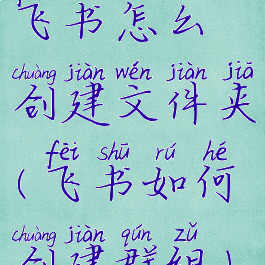 飞书怎么
chuàng jiàn wén jiàn jiā
创建文件夹
fēi shū rú hé
(飞书如何
chuàng jiàn qún zǔ
创建群组)